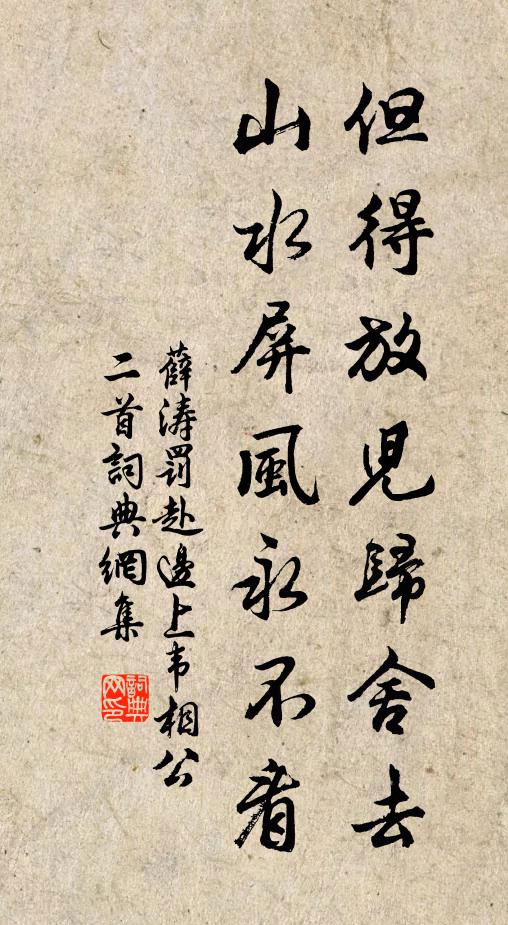 但得放兒歸舍去
山水屏風永不看
薛濤罰赴邊上韦相公
二首詞典網集
詞典
网印